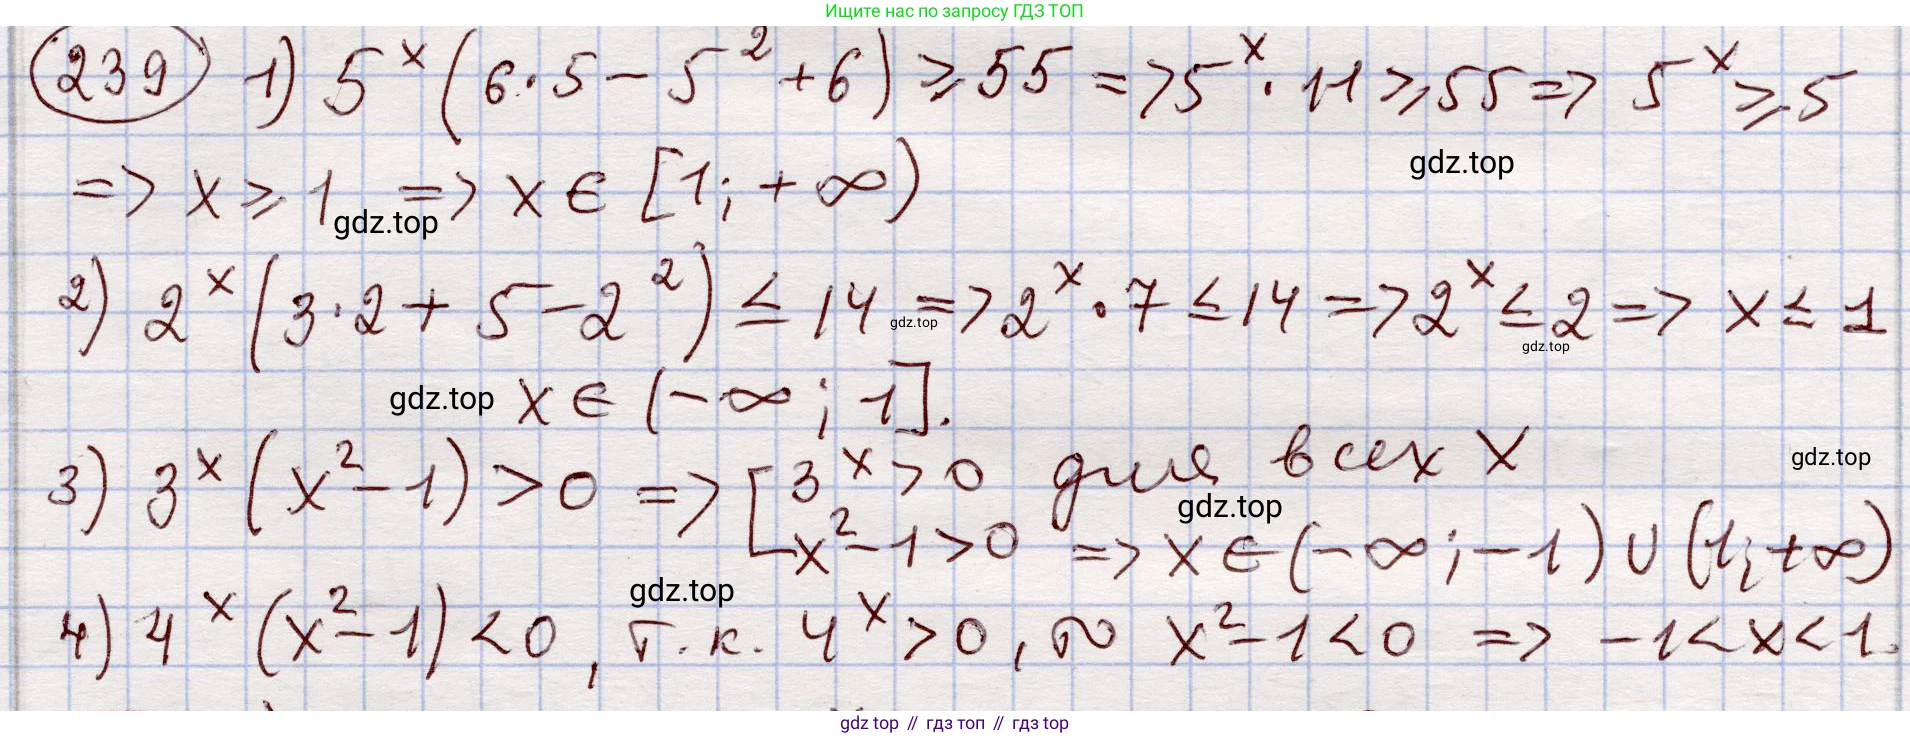 Ищите нас по запросу ГДЗ ТОП
239 1) 5^x (6·5 - 5^2 + 6) ≥ 55 => 5^x · 11 ≥ 55 => 5^x ≥ 5
gdz.top
=> x ≥ 1 => x ∈ [1; +∞)
gdz.top
2) 2^x (3·2 + 5 - 2^2) ≤ 14 => 2^x · 7 ≤ 14 => 2^x ≤ 2 => x ≤ 1
gdz.top
gdz.top
gdz.top x ∈ (-∞; 1].
3) 3^x (x^2 - 1) > 0 => [ 3^x > 0 для всех x
gdz.top
gdz.top
x^2 - 1 > 0 => x ∈ (-∞; -1) ∪ (1; +∞)
gdz.top
4) 4^x (x^2 - 1) < 0, т.к. 4^x > 0, то x^2 - 1 < 0 => -1 < x < 1.
gdz top // гдз топ // гдз top